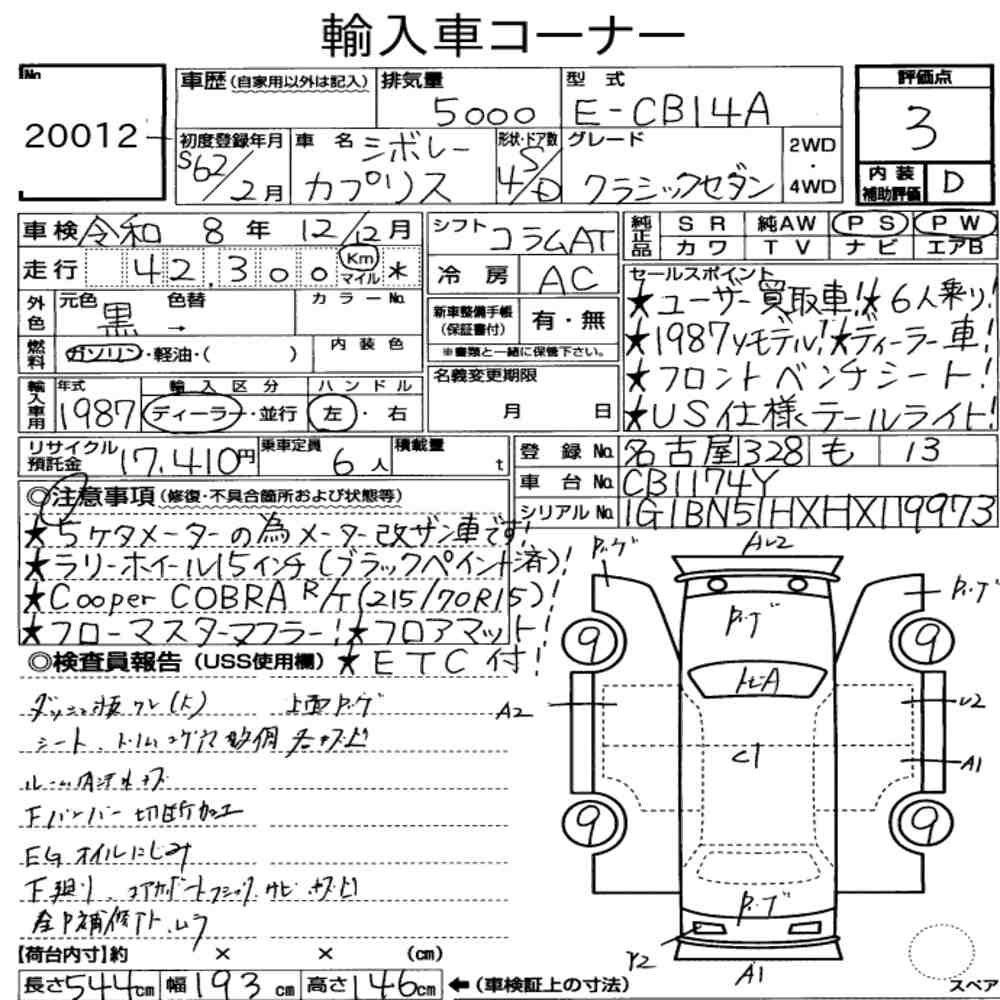 輸入車コーナー
No.
20012
車歴 (自家用以外は記入)
排気量
5000
型式
E-CB14A
評価点
3
内装補助評価 D
初度登録年月
S62/2月
車名
シボレー
カプリス
形状・ドア数
S
4/D
グレード
クラシックセダン
2WD
・
4WD
車検 令和 8年 12/12月
走行 42,300 Km マイル
外色 元色 黒 色替 → カラーNo.
燃料 ガソリン・軽油・( )
内装色
輸入車用 年式 1987
輸入区分 ディーラー・並行
ハンドル 左・右
シフト コラムAT
冷房 AC
新車整備手帳(保証書付) 有・無
※書類と一緒に保管下さい。
名義変更期限
月 日
純正品 SR 純AW PS PW
カワ TV ナビ エアB
セールスポイント
★ユーザー買取車!★6人乗り!
★1987yモデル!★ディーラー車!
★フロントベンチシート!
★US仕様テールライト!
リサイクル預託金 17,410円
乗車定員 6人
積載量 t
登録No. 名古屋 328 も 13
車台No. CB1174Y
シリアルNo. 1G1BN51HXHX119973
◎注意事項 (修復・不具合箇所および状態等)
★5ケタメーターの為メーター改ザン車です!
★ラリーホイール15インチ(ブラックペイント済)!
★Cooper COBRA R/T(215/70R15)!
★フローマスターマフラー!★フロアマット!
◎検査員報告 (USS使用欄) ★ETC付!
シート、トリム
Fバンパー切断加工
EGオイルにじみ
A2
9
9
9
9
C1
A1
A1
【荷台内寸】約 × × (cm)
長さ544cm 幅193cm 高さ146cm ←(車検証上の寸法)
スペア